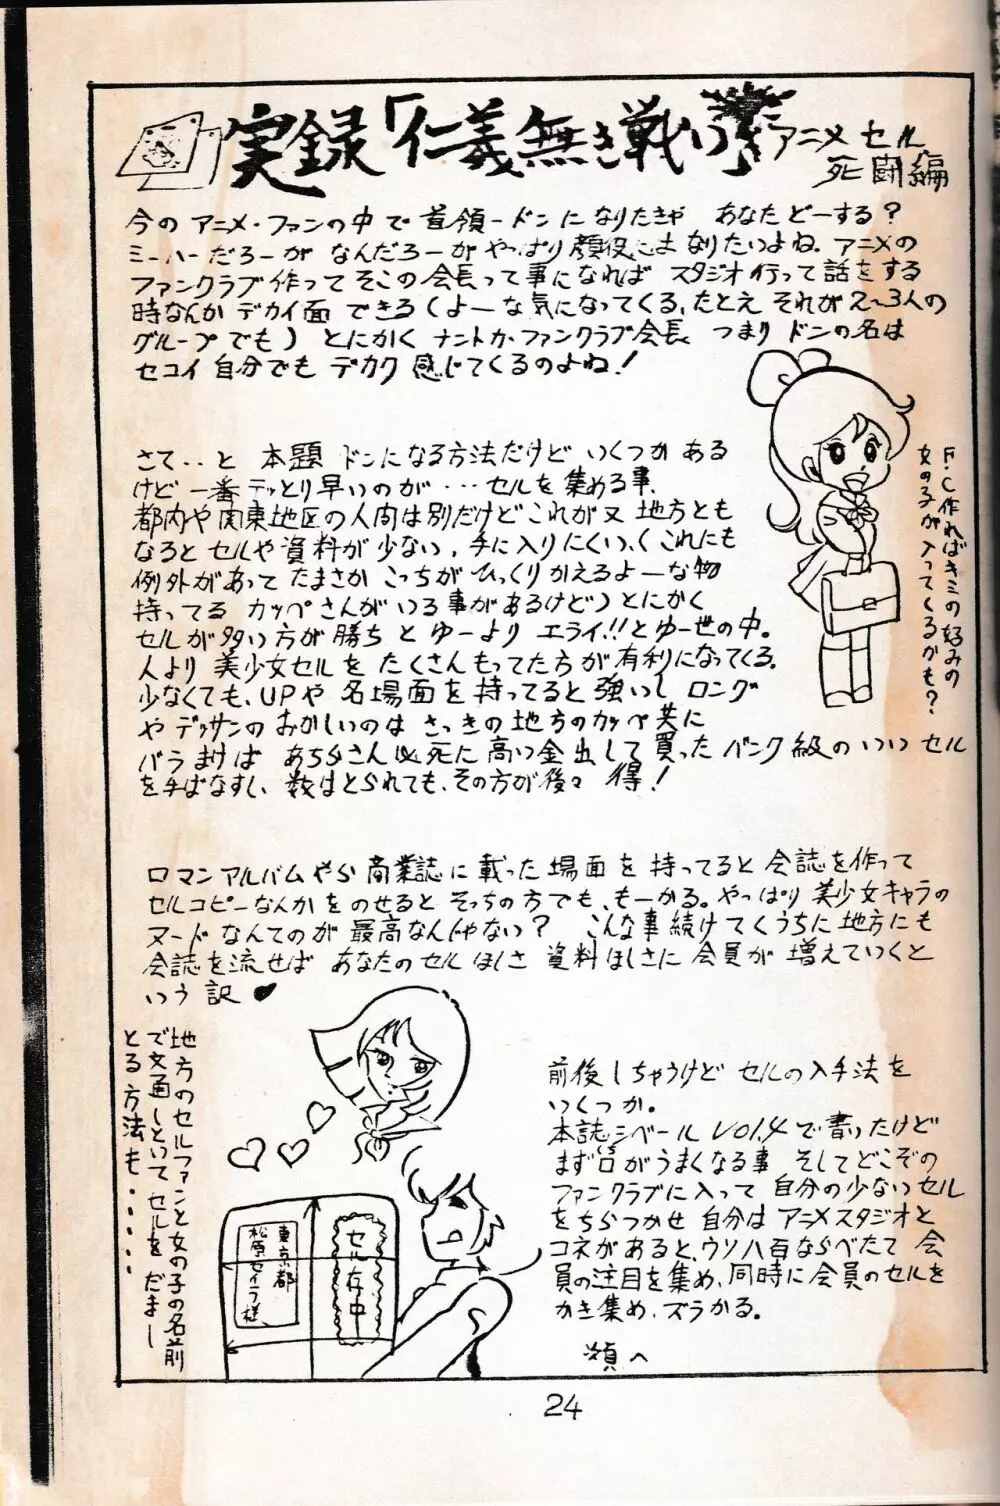 実録「仁義無き戦い」アニメセル
死闘編
今の アニメ・ファンの中で 首領ードンになりたきゃ あなたどーする?
ミーハーだろーが なんだろーが やっぱり顔役には なりたいよね。アニメの
ファンクラブ作って そこの会長って事になれば スタジオ行って話をする
時なんか デカイ面 できる(よーな気になってくる、たとえ それが2〜3人の
グループでも) とにかく ナントカ・ファンクラブ会長 つまり ドンの名は
セコイ自分でも デカク 感じてくるのよね!
F・C作ればキミの好みの
女の子が入ってくるかも?
さて‥と 本題 ドンになる方法だけど いくつか ある
けど 一番 テッとり早いのが …セルを集める事、
都内や関東地区の人間は別だけど これが又 地方とも
なると セルや資料が少ない、手に入りにくい、(これにも
例外があって たまさか こっちが ひっくりかえるよーな物
持ってる カッペさんがいる事があるけど) とにかく
セルが多い方が 勝ち と ゆーより エライ!!とゆー世の中。
人より 美少女セルを たくさんもってた方が 有利になってくる。
少なくても、UPや 名場面を持ってると強いし ロング
や デッサンのおかしいのは さっきの 地方のカッペ共に
バラまけば あちらさん 必死に高い金出して買った バンク級の いい セル
を手ばなすし、数はとられても、その方が後々 得!
ロマンアルバムやら 商業誌に載った場面を 持ってると 会誌を作って
セルコピーなんかをのせると そっちの方でも、もーかる。やっぱり 美少女キャラの
ヌードなんてのが 最高なんじゃない? こんな事続けてくうちに 地方にも
会誌を流せば あなたのセルほしさ 資料ほしさに 会員が 増えていくと
いう 訳♥
地方のセルファンと女の子の名前
で文通しといてセルをだまし
とる方法も・・・・・
東京都
松原セイラ様
セル在中
前後しちゃうけど セルの入手法を
いくつか。
本誌シベール Vol.4で 書ったけど
まず口がうまくなる事 そしてどこぞの
ファンクラブに入って 自分の少ないセル
をちらつかせ 自分は アニメスタジオと
コネがあると、ウソ八百ならべたて 会
員の注目を集め、同時に会員のセルを
かき集め、ズラかる。
次頁へ
24